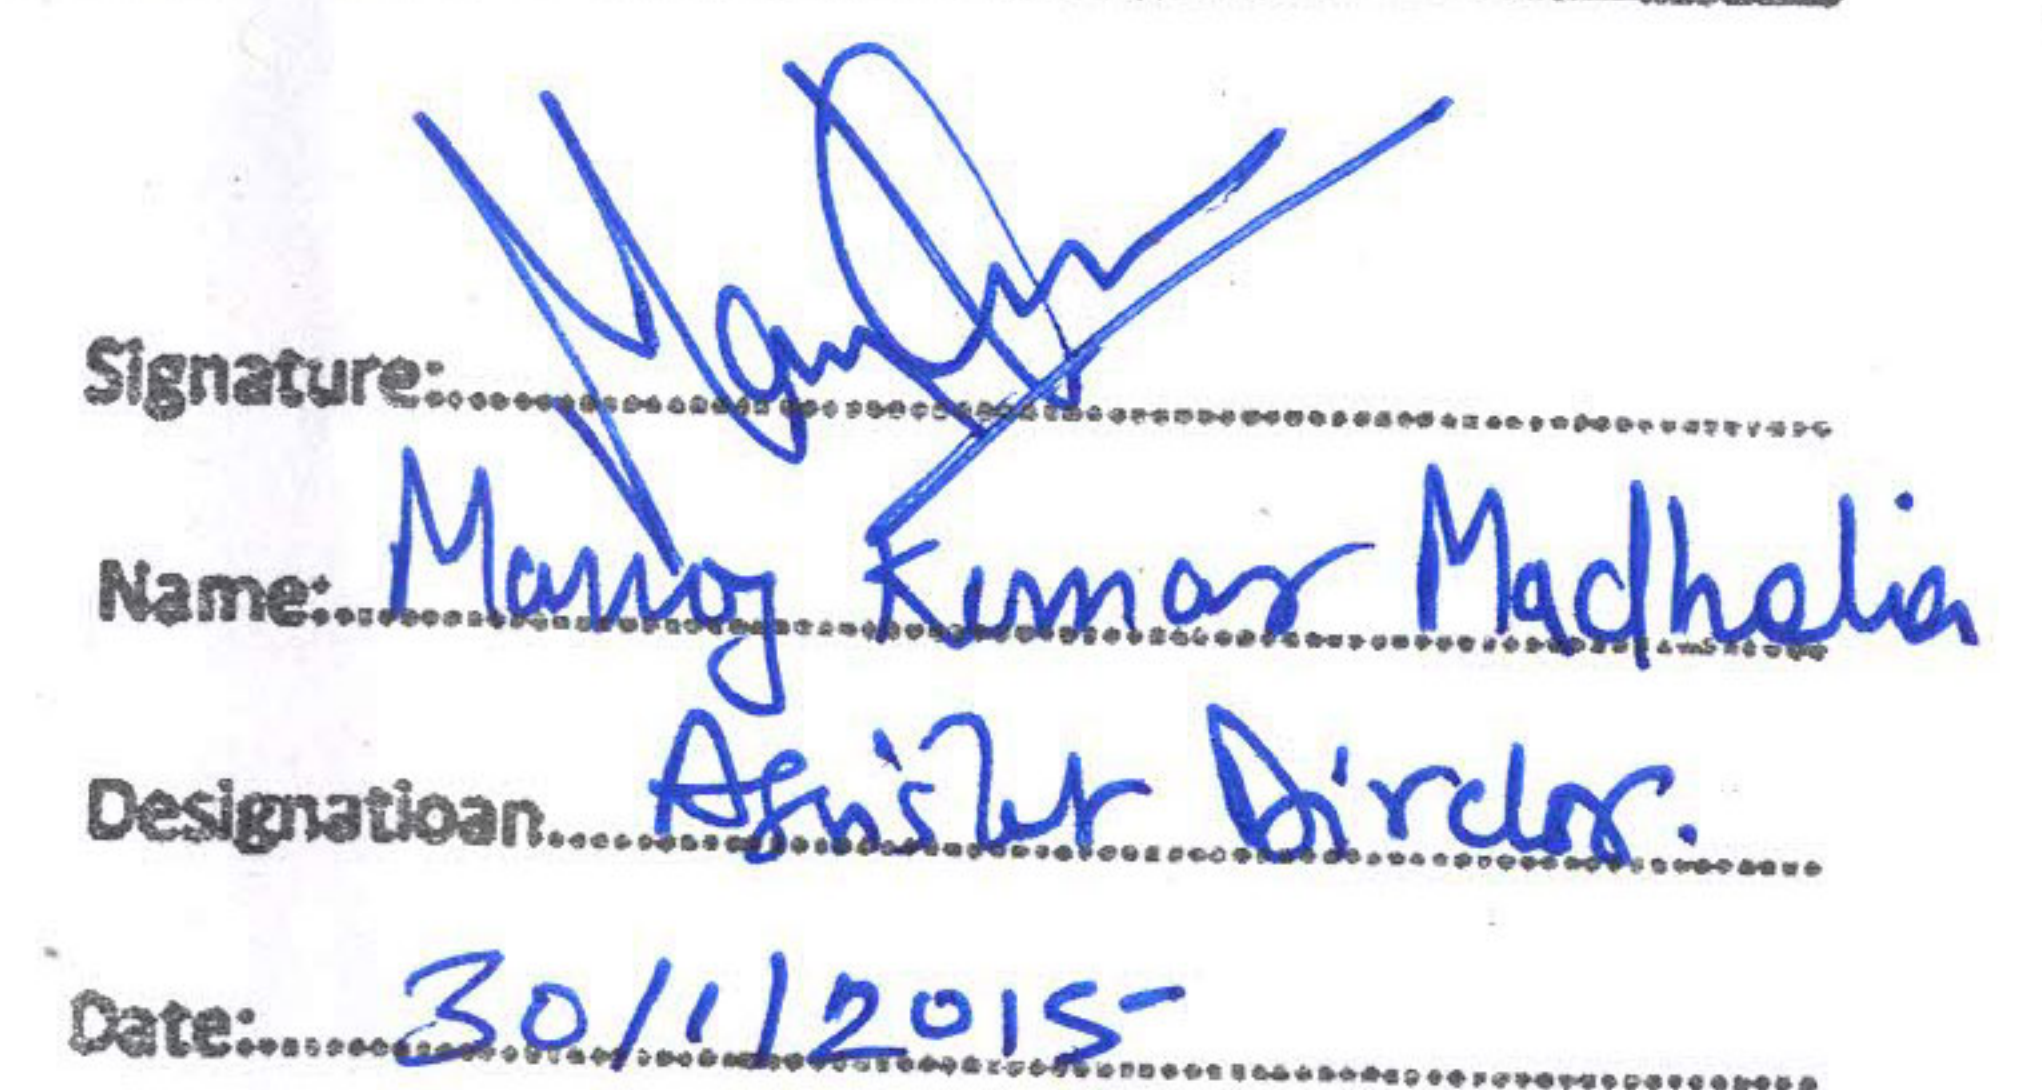 Signature:
Name: Manoj Kumar Madhalia
Designatioan Assistet Director.
Date: 30/1/2015